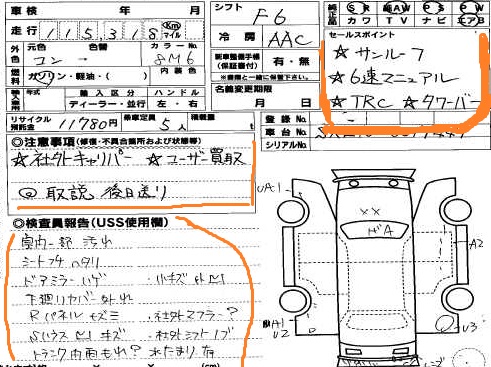 車検 年 月
シフト F6
純正品 SR AW PS PW
カワ TV ナビ エアB
走行 115,318 Km マイル
冷房 AAC
セールスポイント
外色 元色 色替 カラーNo.
コン 8M6
新車整備手帳(保証書付) 有・無
(車歴と一緒に保管下さい)
☆サンルーフ
☆6速マニュアル
☆TRC ☆タワーバー
燃料 ガソリン・軽油・( ) 内装色
名義変更期限
月 日
輸入車 年式 輸入区分 ハンドル
ディーラー・並行 左・右
リサイクル預託金 11780円 乗車定員 5人 積載量
登録No.
車台No.
シリアルNo.
◎注意事項(修復・不具合箇所および状態等)
☆社外キャリパー ☆ユーザー買取
◎取説 後日送り
◎検査員報告(USS使用欄)
室内一部汚れ
シートコゲ ヘタリ
ドアミラーハゲ ・小キズ
下廻りカバー外れ
Rパネルズミ ・社外マフラー?
・社外シフトノブ
トランク内雨もれ? 水たまり有
××
A2
U2
U3
(cm)